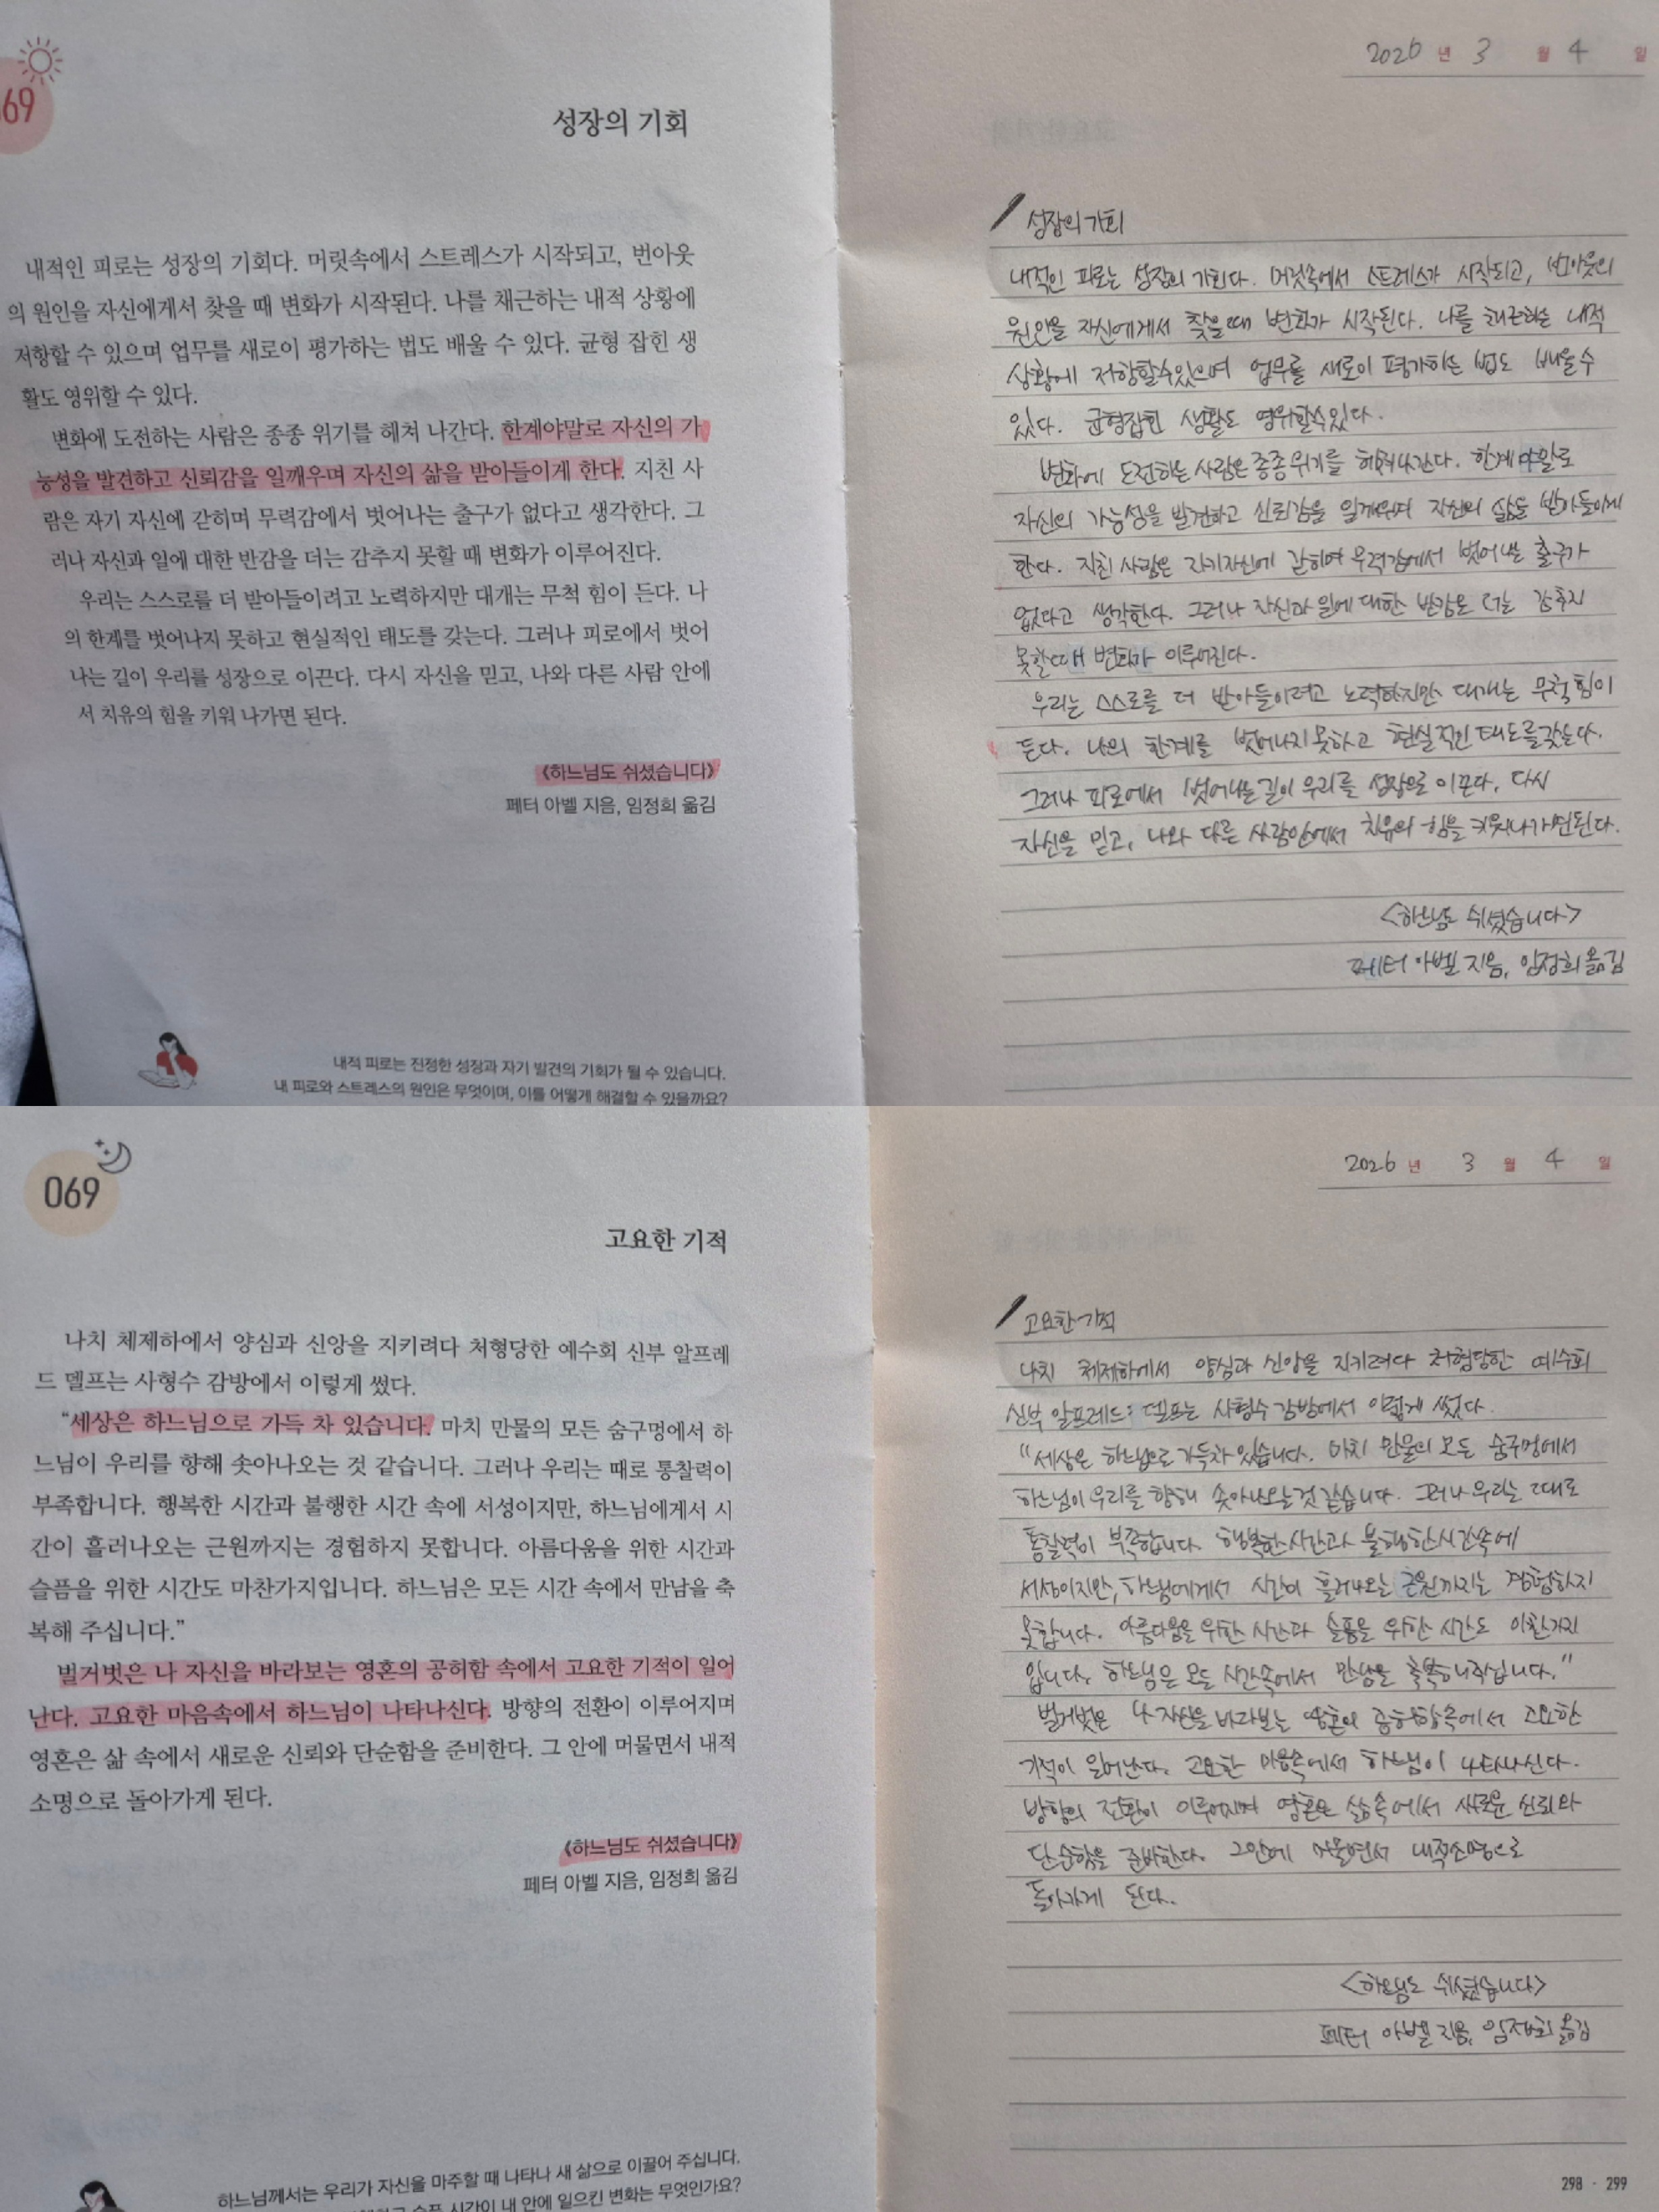 69
성장의 기회
내적인 피로는 성장의 기회다. 머릿속에서 스트레스가 시작되고, 번아웃
의 원인을 자신에게서 찾을 때 변화가 시작된다. 나를 채근하는 내적 상황에
저항할 수 있으며 업무를 새로이 평가하는 법도 배울 수 있다. 균형 잡힌 생
활도 영위할 수 있다.
변화에 도전하는 사람은 종종 위기를 헤쳐 나간다. 한계야말로 자신의 가
능성을 발견하고 신뢰감을 일깨우며 자신의 삶을 받아들이게 한다. 지친 사
람은 자기 자신에 갇히며 무력감에서 벗어나는 출구가 없다고 생각한다. 그
러나 자신과 일에 대한 반감을 더는 감추지 못할 때 변화가 이루어진다.
우리는 스스로를 더 받아들이려고 노력하지만 대개는 무척 힘이 든다. 나
의 한계를 벗어나지 못하고 현실적인 태도를 갖는다. 그러나 피로에서 벗어
나는 길이 우리를 성장으로 이끈다. 다시 자신을 믿고, 나와 다른 사람 안에
서 치유의 힘을 키워 나가면 된다.
《하느님도 쉬셨습니다》
페터 아벨 지음, 임정희 옮김
내적 피로는 진정한 성장과 자기 발견의 기회가 될 수 있습니다.
내 피로와 스트레스의 원인은 무엇이며, 이를 어떻게 해결할 수 있을까요?
2026 년 3 월 4 일
성장의 기회
내적인 피로는 성장의 기회다. 머릿속에서 스트레스가 시작되고, 번아웃의
원인을 자신에게서 찾을때 변화가 시작된다. 나를 채근하는 내적
상황에 저항할수있으며 업무를 새로이 평가하는 법도 배울수
있다. 균형잡힌 생활도 영위할수있다.
변화에 도전하는 사람은 종종 위기를 헤쳐나간다. 한계야말로
자신의 가능성을 발견하고 신뢰감을 일깨우며 자신의 삶을 받아들이게
한다. 지친 사람은 자기자신에 갇히며 무력감에서 벗어나는 출구가
없다고 생각한다. 그러나 자신과 일에 대한 반감을 더는 감추지
못할때 변화가 이루어진다.
우리는 스스로를 더 받아들이려고 노력하지만 대개는 무척 힘이
든다. 나의 한계를 벗어나지못하고 현실적인 태도를갖는다.
그러나 피로에서 벗어나는길이 우리를 성장으로 이끈다. 다시
자신을 믿고, 나와 다른 사람안에서 치유의 힘을 키워나가면된다.
<하느님도 쉬셨습니다>
페터 아벨 지음, 임정희 옮김
069
고요한 기적
나치 체제하에서 양심과 신앙을 지키려다 처형당한 예수회 신부 알프레
드 델프는 사형수 감방에서 이렇게 썼다.
“세상은 하느님으로 가득 차 있습니다. 마치 만물의 모든 숨구멍에서 하
느님이 우리를 향해 솟아나오는 것 같습니다. 그러나 우리는 때로 통찰력이
부족합니다. 행복한 시간과 불행한 시간 속에 서성이지만, 하느님에게서 시
간이 흘러나오는 근원까지는 경험하지 못합니다. 아름다움을 위한 시간과
슬픔을 위한 시간도 마찬가지입니다. 하느님은 모든 시간 속에서 만남을 축
복해 주십니다.”
벌거벗은 나 자신을 바라보는 영혼의 공허함 속에서 고요한 기적이 일어
난다. 고요한 마음속에서 하느님이 나타나신다. 방향의 전환이 이루어지며
영혼은 삶 속에서 새로운 신뢰와 단순함을 준비한다. 그 안에 머물면서 내적
소명으로 돌아가게 된다.
《하느님도 쉬셨습니다》
페터 아벨 지음, 임정희 옮김
하느님께서는 우리가 자신을 마주할 때 나타나 새 삶으로 이끌어 주십니다.
슬픈 시간이 내 안에 일으킨 변화는 무엇인가요?
2026 년 3 월 4 일
고요한 기적
나치 체제하에서 양심과 신앙을 지키려다 처형당한 예수회
신부 알프레드 델프는 사형수 감방에서 이렇게 썼다.
"세상은 하느님으로 가득차 있습니다. 마치 만물의 모든 숨구멍에서
하느님이 우리를 향해 솟아나오는것 같습니다. 그러나 우리는 때로
통찰력이 부족합니다. 행복한시간과 불행한시간속에
서성이지만, 하느님에게서 시간이 흘러나오는 근원까지는 경험하지
못합니다. 아름다움을 위한 시간과 슬픔을 위한 시간도 마찬가지
입니다. 하느님은 모든 시간속에서 만남을 축복해주십니다."
벌거벗은 나자신을 바라보는 영혼의 공허함속에서 고요한
기적이 일어난다. 고요한 마음속에서 하느님이 나타나신다.
방향의 전환이 이루어지며 영혼은 삶속에서 새로운 신뢰와
단순함을 준비한다. 그안에 머물면서 내적소명으로
돌아가게 된다.
<하느님도 쉬셨습니다>
페터 아벨 지음, 임정희 옮김
298 · 299